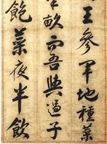 王參軍地種菜
畝而吾與過子
飽菜夜半飲